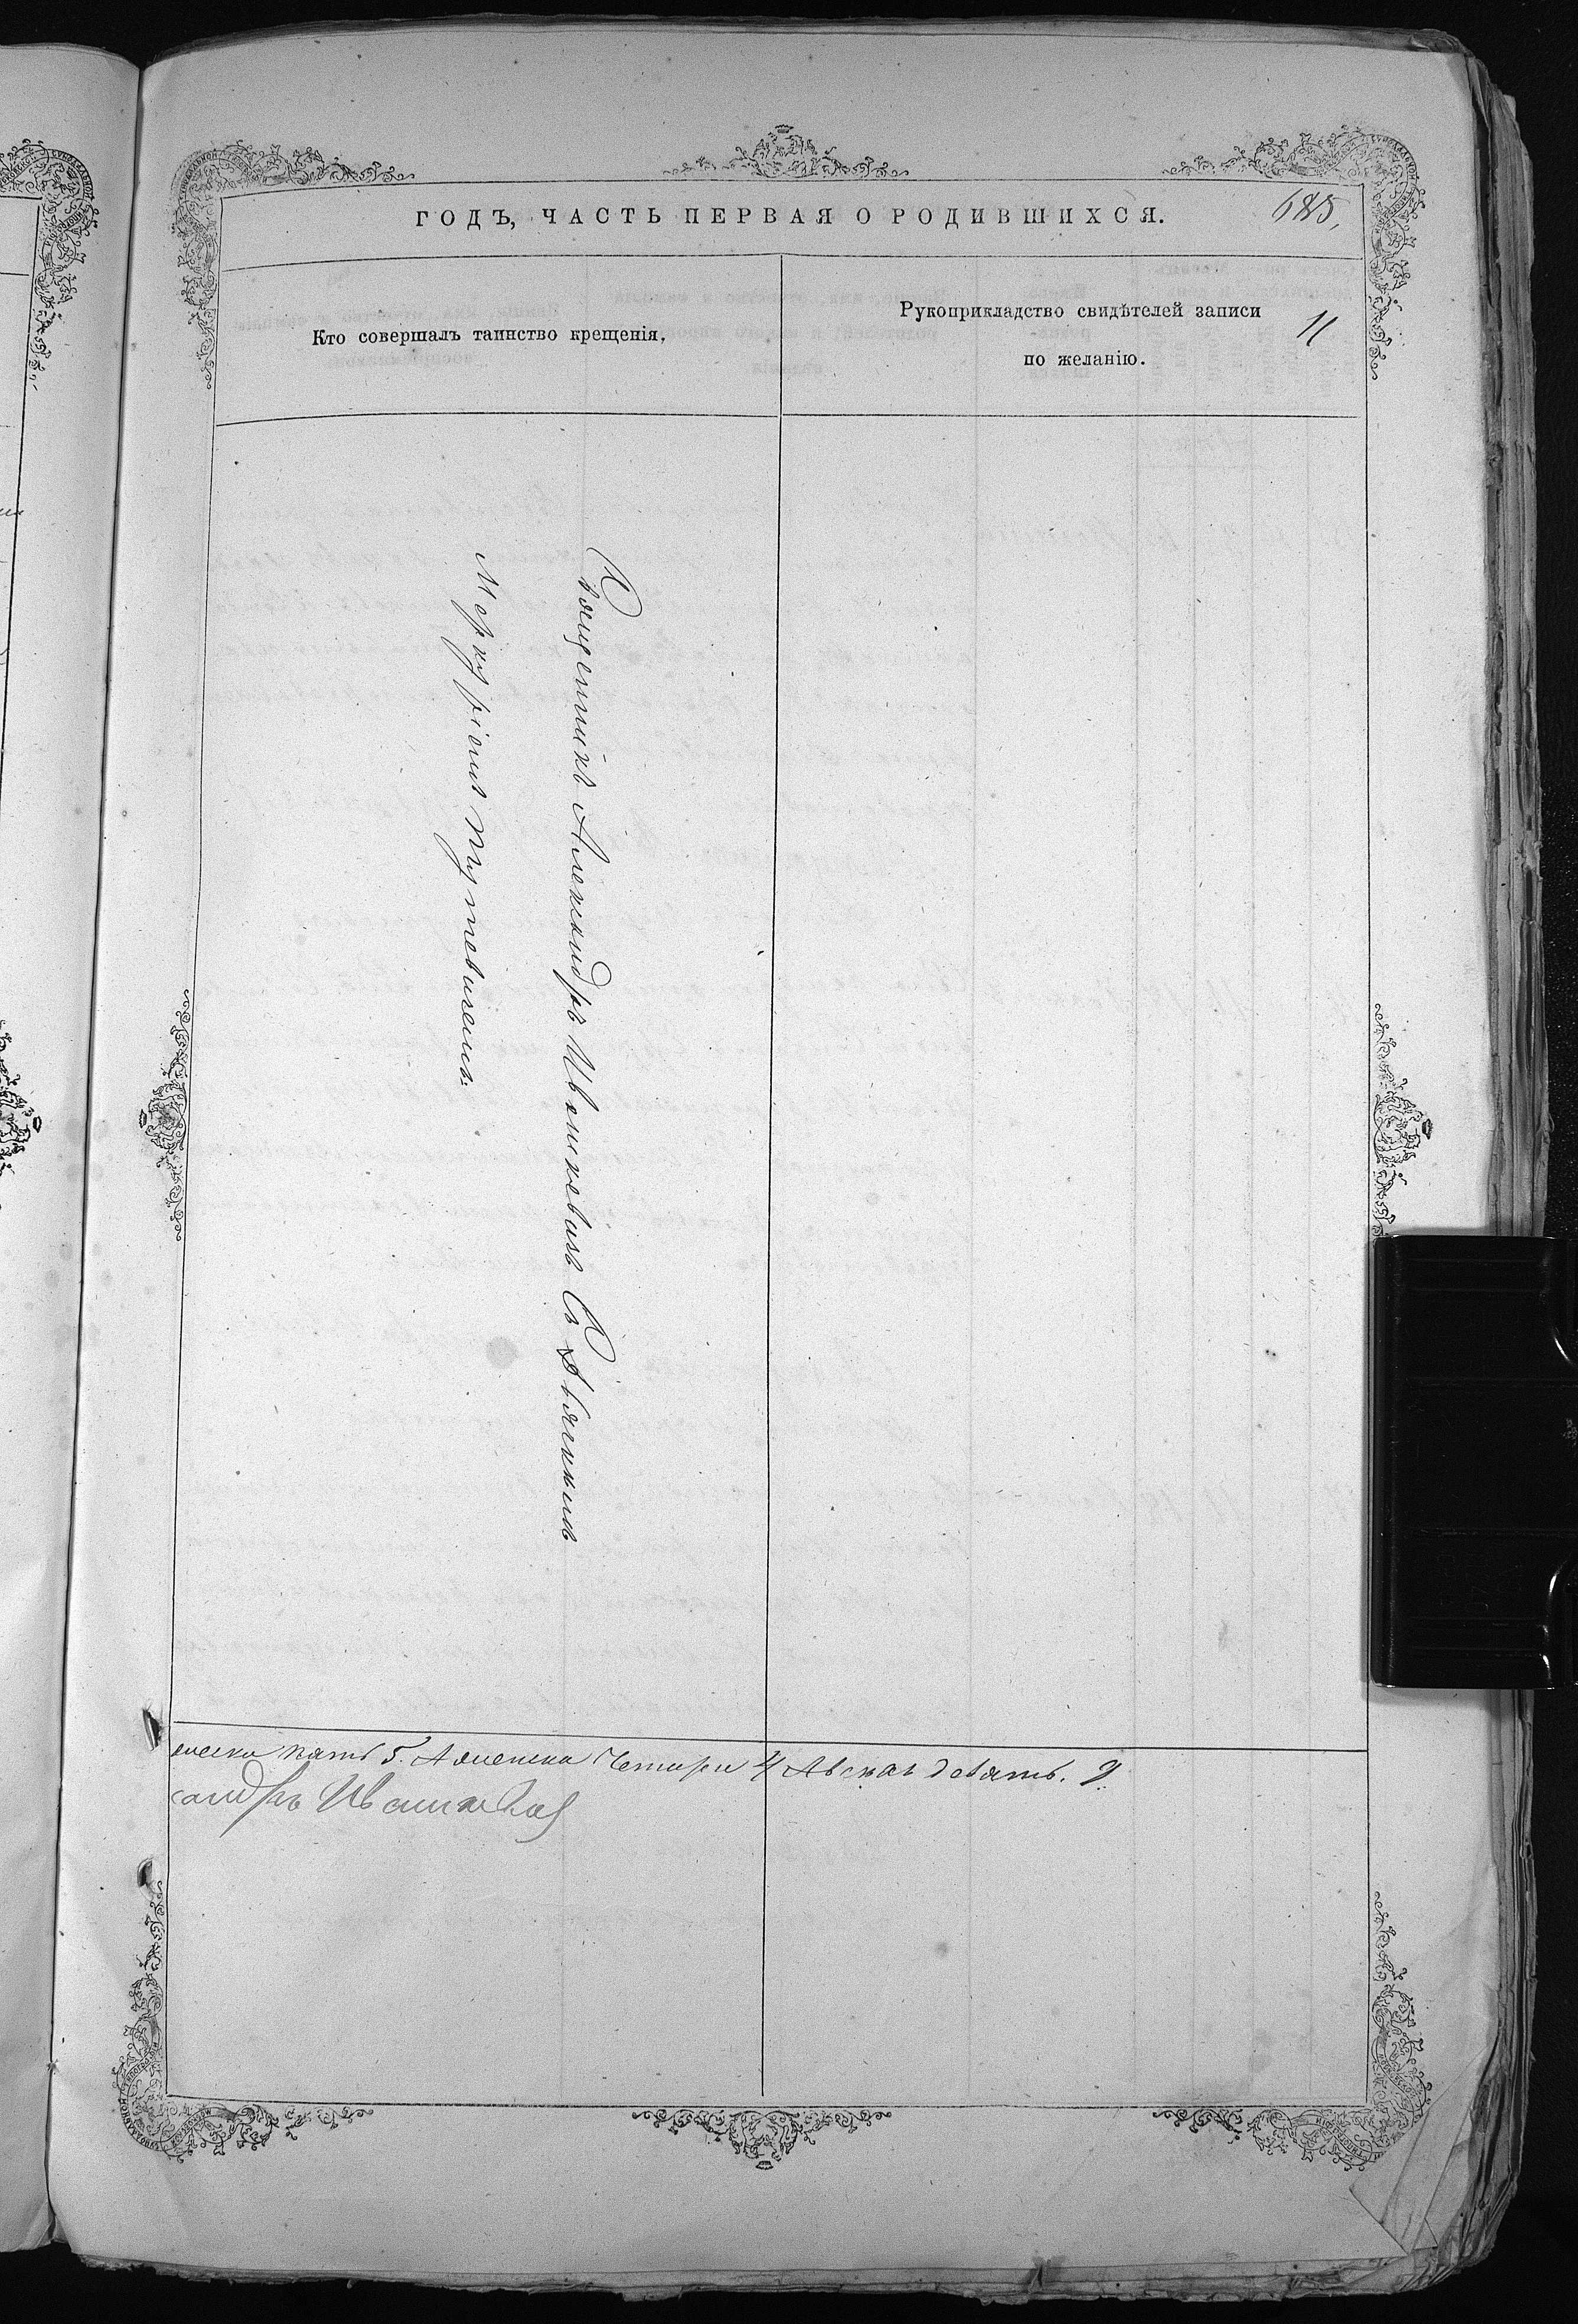 ГОДЪ, ЧАСТЬ ПЕРВАЯ О РОДИВШИХСЯ.
685.
Кто совершалъ таинство крещенія.
Рукоприкладство свидѣтелей записи
по желанію.
11
Священникъ Александръ Ивашкевичъ Съ Дьячкомъ
Меркуріемъ Тутевичемъ.
ческа пять 5. А женска Четыри 4 А всѣхъ девять. 9.
сандръ Ивашкевич